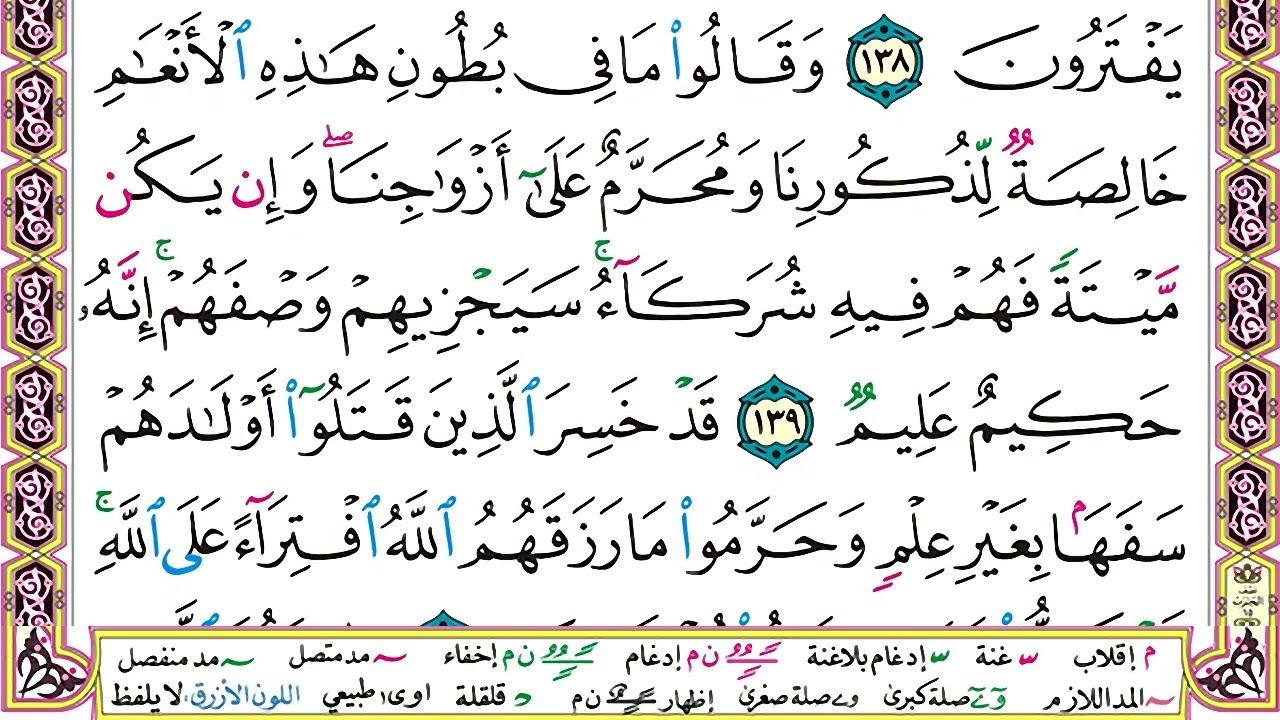 يَفْتَرُونَ ١٣٨ وَقَالُوا۟ مَا فِى بُطُونِ هَـٰذِهِ ٱلْأَنْعَـٰمِ
خَالِصَةٌ لِّذُكُورِنَا وَمُحَرَّمٌ عَلَىٰٓ أَزْوَٰجِنَا ۖ وَإِن يَكُن
مَّيْتَةً فَهُمْ فِيهِ شُرَكَآءُ ۚ سَيَجْزِيهِمْ وَصْفَهُمْ ۚ إِنَّهُۥ
حَكِيمٌ عَلِيمٌ ١٣٩ قَدْ خَسِرَ ٱلَّذِينَ قَتَلُوٓا۟ أَوْلَـٰدَهُمْ
سَفَهًۢا بِغَيْرِ عِلْمٍ وَحَرَّمُوا۟ مَا رَزَقَهُمُ ٱللَّهُ ٱفْتِرَآءً عَلَى ٱللَّهِ ۚ
م إقلاب ّ غنة ّ إدغام بلاغنة ن م إدغام ن م إخفاء ~ مد متصل ~ مد منفصل
~ المد اللازم وے صلة كبرىٰ وے صلة صغرىٰ إظهار ن م د قلقلة اوى طبيعي اللون الأزرق: لا يلفظ